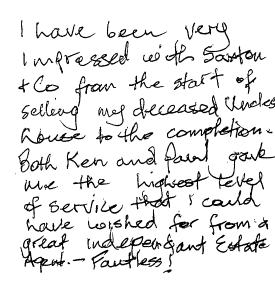 I have been very
impressed with Saxton
+ Co from the start of
selling my deceased Uncles
house to the completion.
Both Ken and Paul gave
me the highest level
of service that I could
have wished for from a
great independant Estate
Agent. - Faultless!